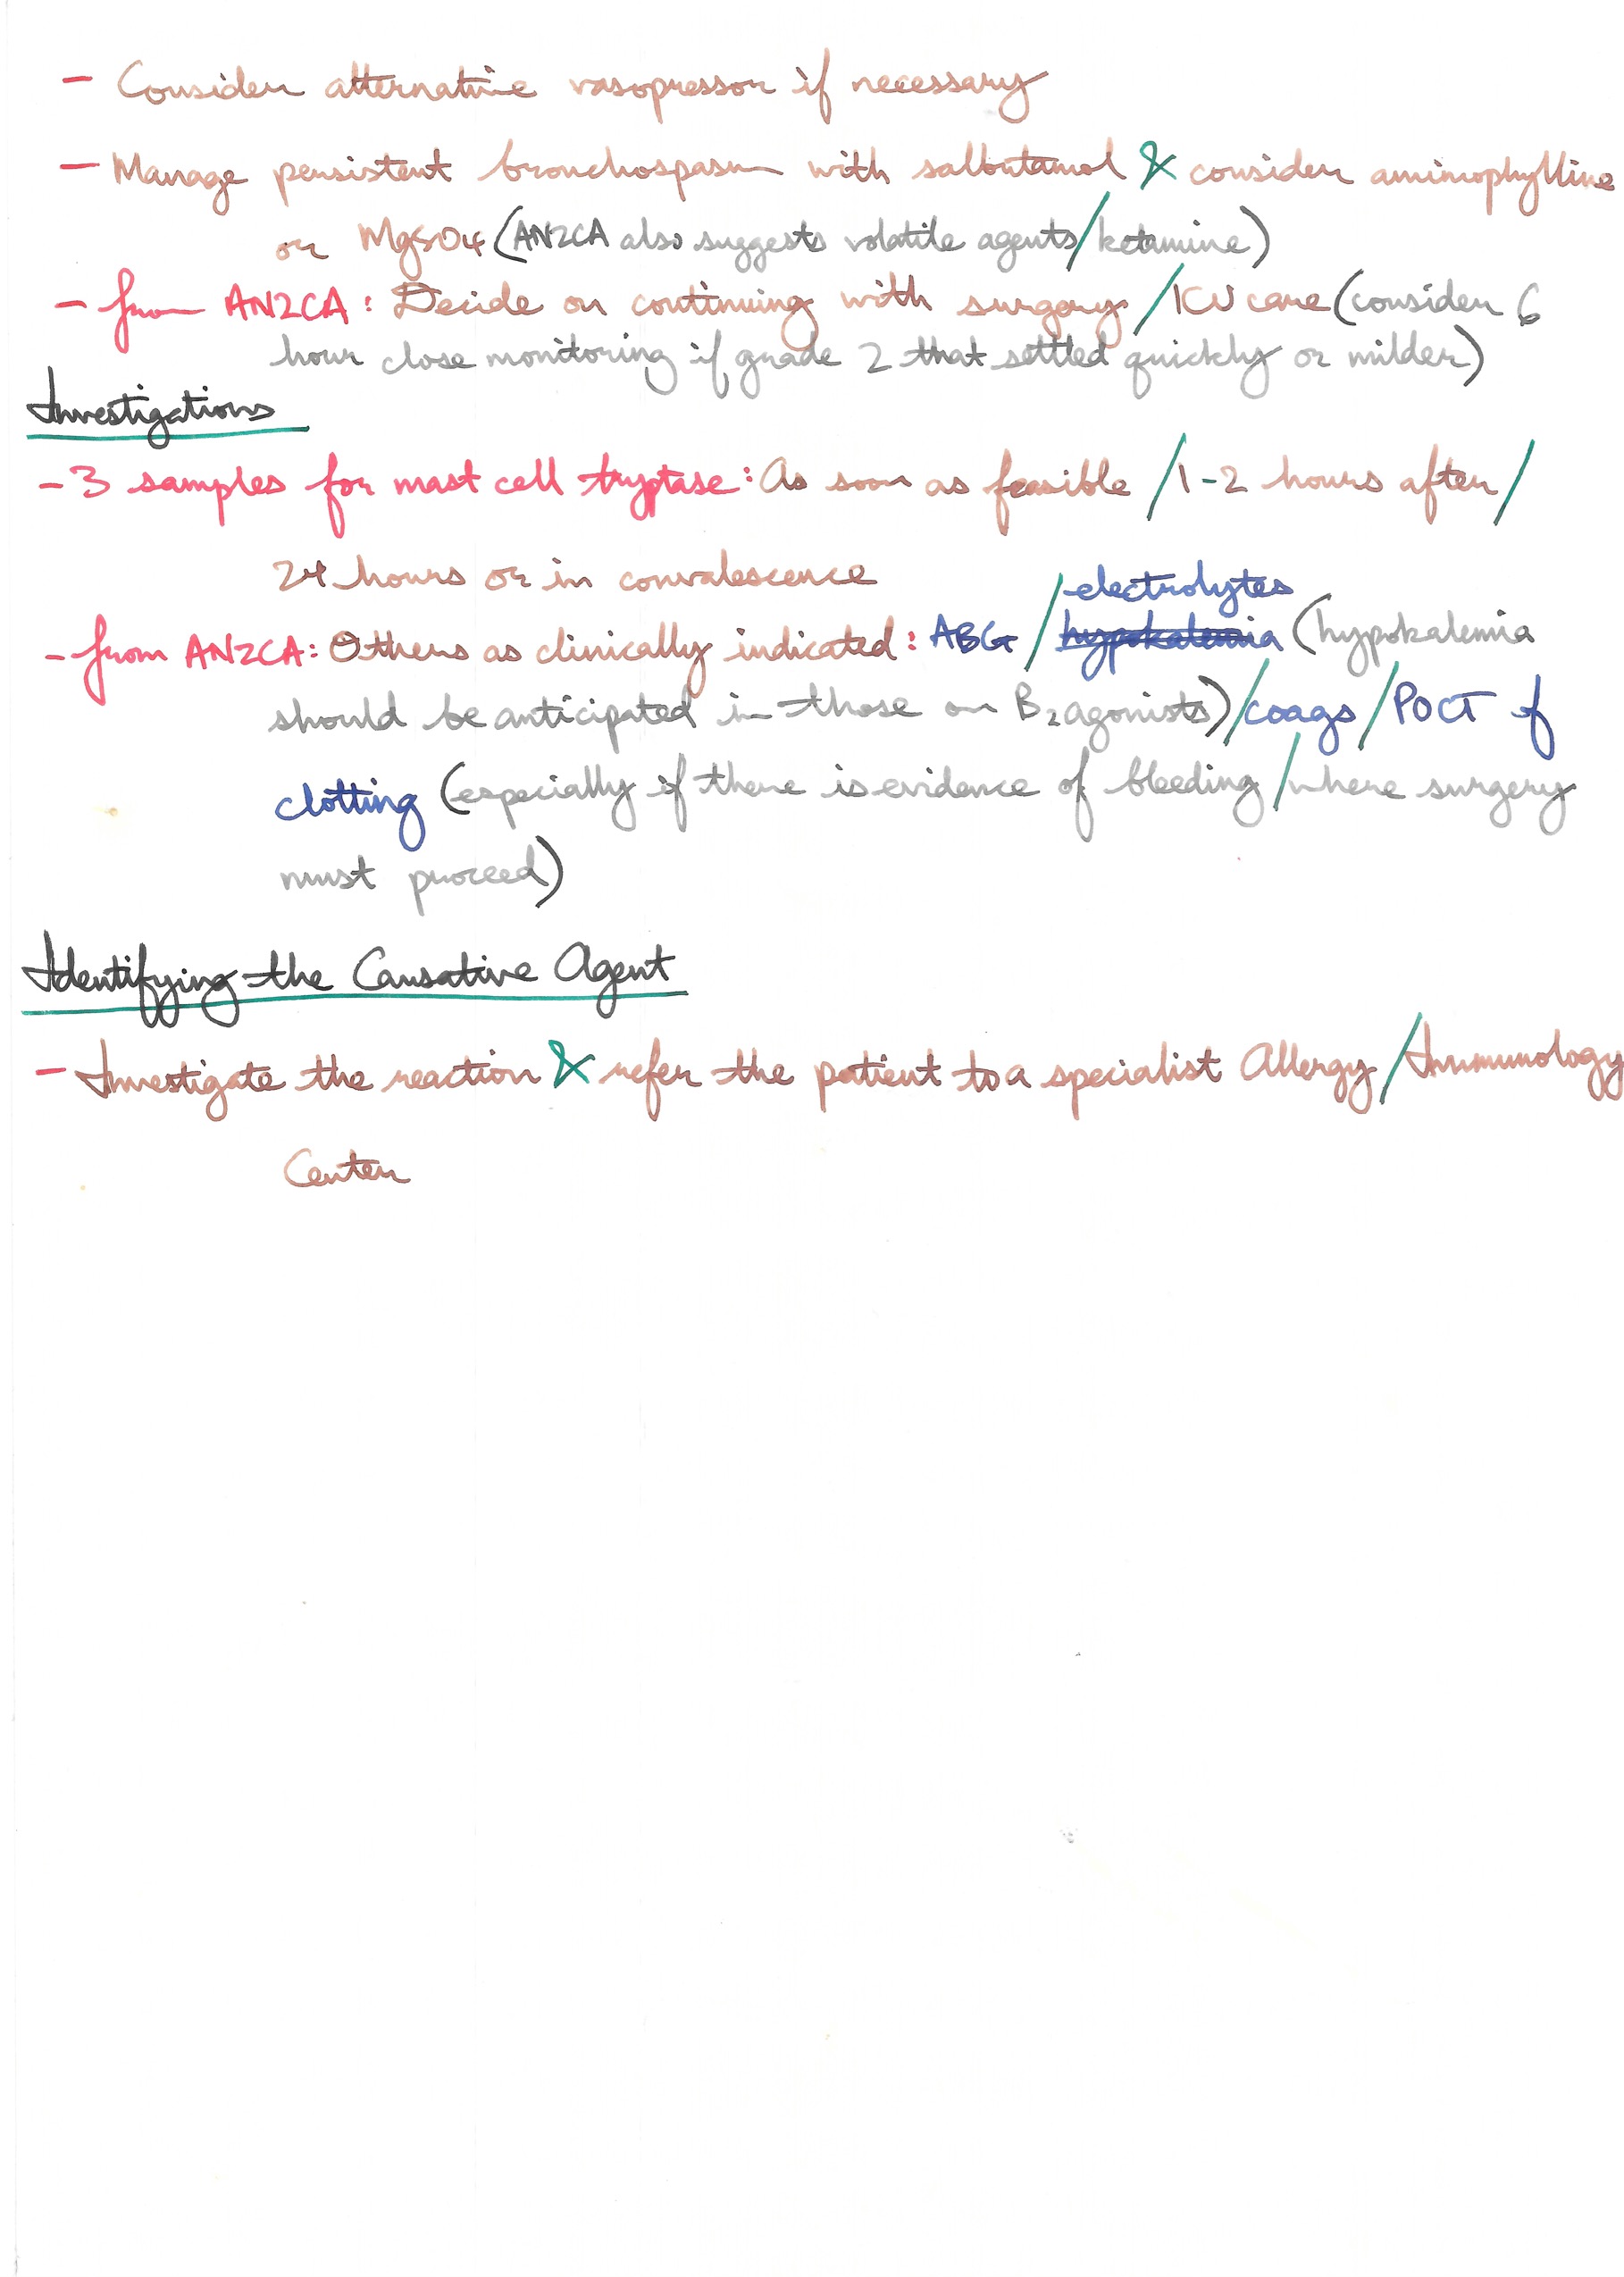 - Consider alternative vasopressor if necessary
- Manage persistent bronchospasm with salbutamol & consider aminophylline
or MgSO4 (ANZCA also suggests volatile agents/ketamine)
- from ANZCA: Decide on continuing with surgery/ICU care (consider 6
hour close monitoring if grade 2 that settled quickly or milder)
Investigations
- 3 samples for mast cell tryptase: As soon as feasible/1-2 hours after/
24 hours or in convalescence
electrolytes
- from ANZCA: Others as clinically indicated: ABG/hypokalemia (hypokalemia
should be anticipated in those on B2 agonists)/coags/POCT of
clotting (especially if there is evidence of bleeding/where surgery
must proceed)
Identifying the Causative Agent
- Investigate the reaction & refer the patient to a specialist Allergy/Immunology
Center